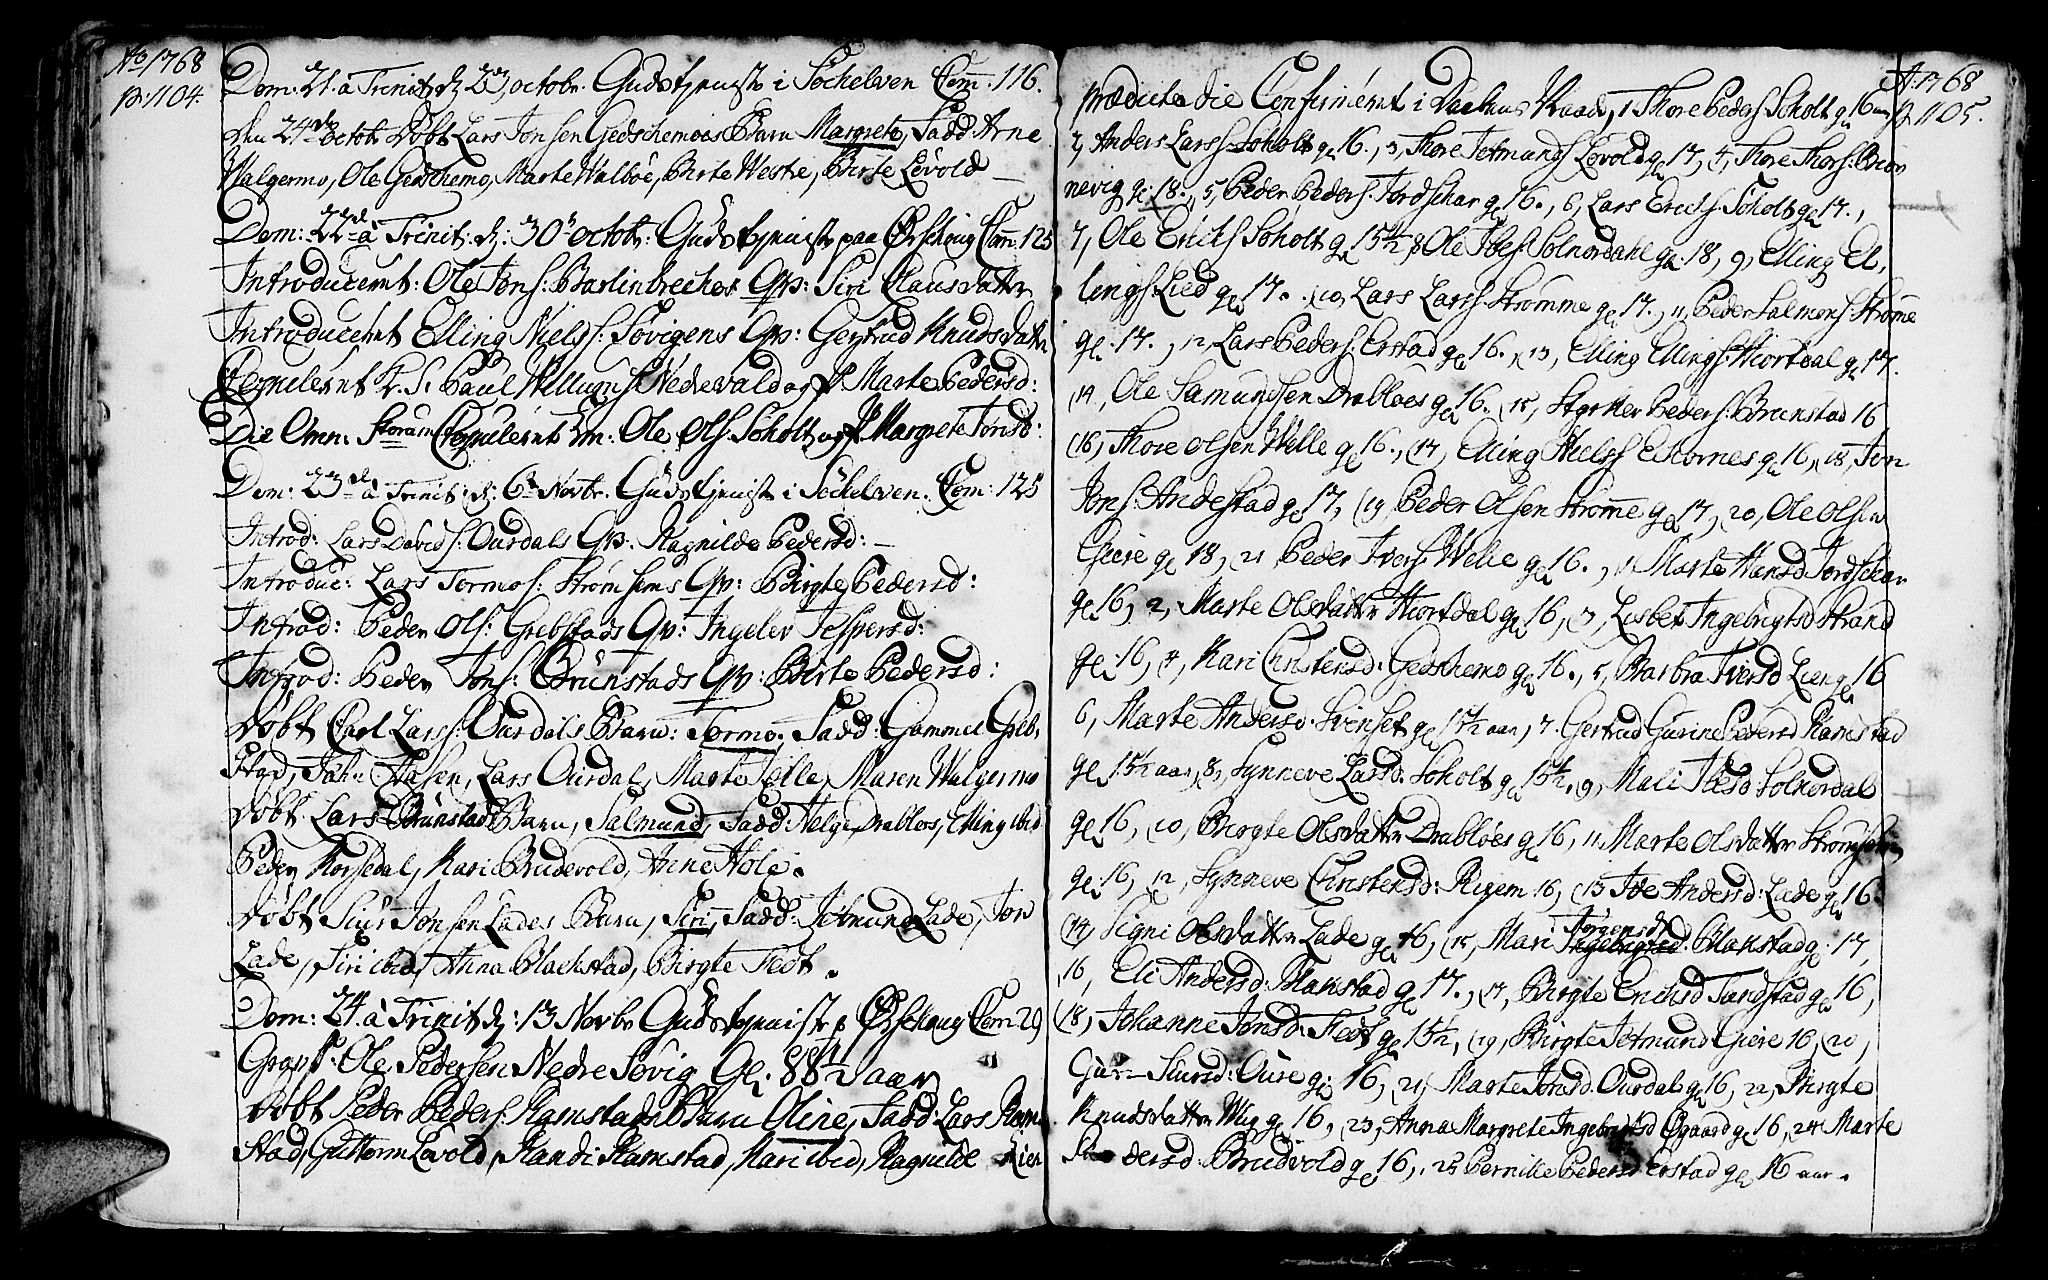 Ao 1768
p. 1104.
Dom: 21. à Trinit: d. 23 octobr. Gudstjeniste i Søchelven Com. 116.
den 24de octobr Døbt Lars Jonsen Gedschemoes Barn Margrete, Fadd: Arne
Walgermo, Ole Gedschemo, Marte Walbøe, Birte Westre, Birte Løvold
Dom: 22de à Trinit: d: 30te octobr: Gudstjeniste paa Ørschoug Com: 125
Introduceret: Ole Jons: Barlinbreches Qv: Siri Clausdatter
Introduceret Elling Niels: Søvigens Qv: Gertrud Knudsdatter
Copuleret K. S. Paul Nedrevald og P. Marte Pedersd:
Die Omn. Storum Copuleret Em: Ole Ols: Soholt og P. Margrete Jonsd:
Dom: 23de à Trinit: d: 6te Novbr. Gudstjeniste i Søchelven. Com: 125
Introd: Lars Davids: Ourdals Qv. Ragnilde Pedersd:
Introduc: Lars Tormos: Strømhems Qv: Birgte Pedersd:
Introd: Peder Ols: Grebstads Qv: Ingelev Jespersd:
Introd: Peder Jons: Brunstads Qv: Birte Pedersd:
Døbt Carl Larss: Ourdals Barn: Tormo. Fadd: Gammel Greb,
stad, Jahn Aasen, Lars Ourdal, Marte Welle, Maren Walgermo
Døbt Lars Brunstads Barn, Salmund, Fadd: Helge Drabløs, Elling ibid
Peder Korsedal, Kari Brudevold, Anne Hole.
Døbt Siur Jonsen Lades Barn, Siri, Fadd: Jetmund Lade, Jon
Lade, Siri ibid, Anna Blachstad, Birgte Fedt.
Dom: 24. à Trinit d: 13 Novbr Gudstjeniste p Ørschoug Com 29
Grav P. Ole Pedersen Nedre Søvig Gl: 88½ aar
Døbt Peder Peders: Ramstads Barn Oline, Fadd: Lars Ram
stad, Guttorm Løvold, Randi Ramstad, Kari ibid, Ragnilde Lien
A: 1768
p. 1105.
prædicta die Confirmeret i Raad, 1 Thore Peders Soholt gl 16 aar
2, Anders Larss Soholt gl 16., 3, Thore Jetmunds Løvold gl 17, 4, Thore Thors: Biør
nevig gl: 18., 5, Peder Peders: Jordschar gl 16., 6, Lars Erichs: Soholt gl 17.,
7, Ole Erichs Soholt gl 15½, 8, Ole Solnørdahl gl: 18, 9, Elling El,
lings Lied gl 17., 10, Lars Larss: Strømme gl 17., 11, Peder Salmons: Strømme
gl: 17., 12, Lars Peders: Erstad gl 16., 13, Elling Ellings: Hiortdal gl 17.
14, Ole Samundsen Drabløes gl 16., 15, Peders: Brunstad 16
16, Thore Olsen Welle gl 16., 17, Elling Nielss Ekornes gl 16, 18, Jon
Jons: Andestad gl 17, 19, Peder Olsen Strømme gl 17, 20, Ole Olsen
Giere gl 18, 21 Peder Ivers: Welle gl 16., 1, Marte Hansd Jordschar
gl 16, 2, Marte Olsdatter Hiortdal gl 16, 3, Lisbet Ingebrigtsd Strand
gl: 16, 4, Kari Christensd: Gedschemo gl 16., 5, Barbra Iversd Lien gl 16
6, Marte Andersd: Svinset gl 15½ aar, 7. Gertrud Gurine Pedersd Ramstad
gl 15½ aar, 8, Synneve Larsd: Soholt gl 15½, 9, Mali Solnørdal
gl 16, 10, Birgte Olsdatter Drabløes gl 16, 11 Marte Olsdatter Strømsheim
gl: 16, 12, Synneve Christensd: Rigem 16, 13 Ide Andersd: Lade gl 16.
14, Signi Olsdatter Lade gl 16, 15, Mari Jørgensd Ingebrigtsd: Blakstad gl: 17,
16, Eli Andersd: Blakstad gl 17., 17, Birgte Erichsd Tandstad gl 16,
18, Johanne Jonsd: Fedt gl 15½, 19, Birgte Jetmund Giere 16, 20,
Gu Siursd: Oure gl: 16, 21, Marte Jonsd: Ourdal gl 16, 22, Birgte
Knudsdatter Wiig gl 16, 23, Anna Margrete Ingebrigtsd Øgaard gl 16, 24 Marte
Pedersd: Brudvold gl 16, 25 Pernille Pedersd Erstad gl 16 aar.